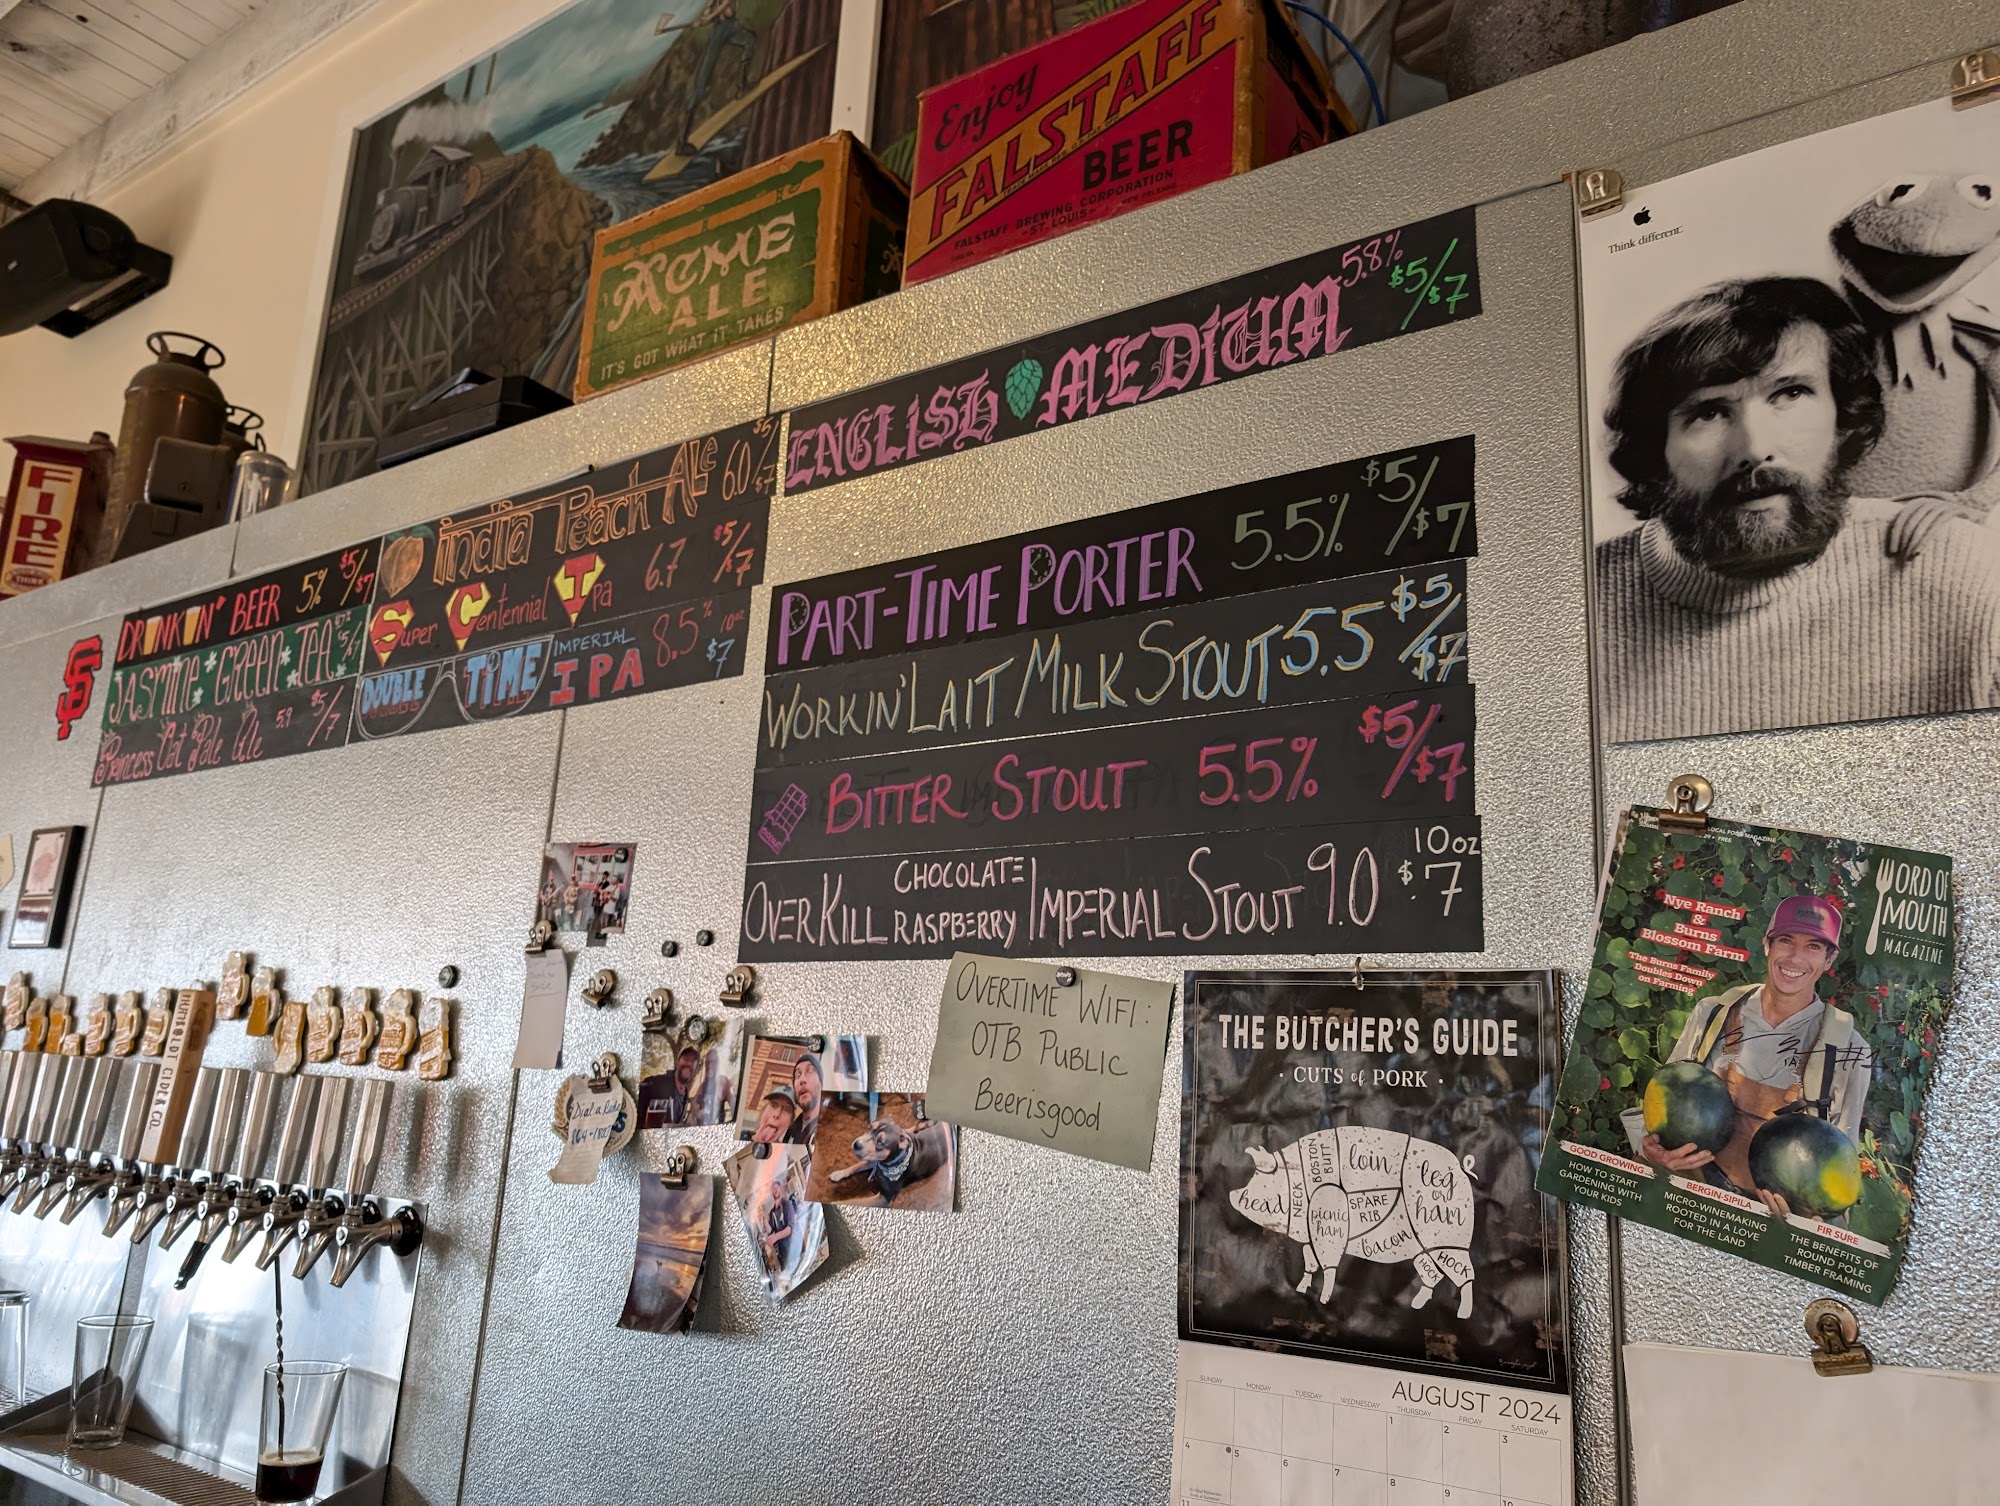 Enjoy
FALSTAFF
BEER
FALSTAFF BREWING CORPORATION
-ST. LOUIS- NEW ORLEANS
ACME
ALE
IT'S GOT WHAT IT TAKES
FIRE
SF
DRINKIN' BEER 5% $5/$7
JASMINE*GREEN*TEA $5/7
Princess Cat Pale Ale 5.9 $5/7
India Peach Ale 6.0 $5/$7
Super Centennial Ipa 6.7 $5/$7
DOUBLE TIME IMPERIAL IPA 8.5% 10oz $7
ENGLISH MEDIUM 5.8% $5/$7
PART-TIME PORTER 5.5% $5/$7
WORKIN' LAIT MILK STOUT 5.5 $5/$7
BITTER STOUT 5.5% $5/$7
OVERKILL CHOCOLATE RASPBERRY IMPERIAL STOUT 9.0 10oz $7
Think different.
OVERTIME WIFI:
OTB PUBLIC
Beerisgood
Dial a Ride
HUMBOLDT CIDER CO.
THE BUTCHER'S GUIDE
· CUTS of PORK ·
head
NECK
BOSTON BUTT
loin
picnic ham
SPARE RIB
bacon
leg or ham
HOCK
HOCK
AUGUST 2024
SUNDAY MONDAY TUESDAY WEDNESDAY THURSDAY FRIDAY SATURDAY
1 2 3
4 5 6 7 8 9 10
11
LOCAL FOOD MAGAZINE
FREE
WORD OF
MOUTH
MAGAZINE
Nye Ranch
&
Burns
Blossom Farm
The Burns Family
Doubles Down
on Farming
#1
GOOD GROWING
HOW TO START
GARDENING WITH
YOUR KIDS
BERGIN-SIPILA
MICRO-WINEMAKING
ROOTED IN A LOVE
FOR THE LAND
FIR SURE
THE BENEFITS OF
ROUND POLE
TIMBER FRAMING